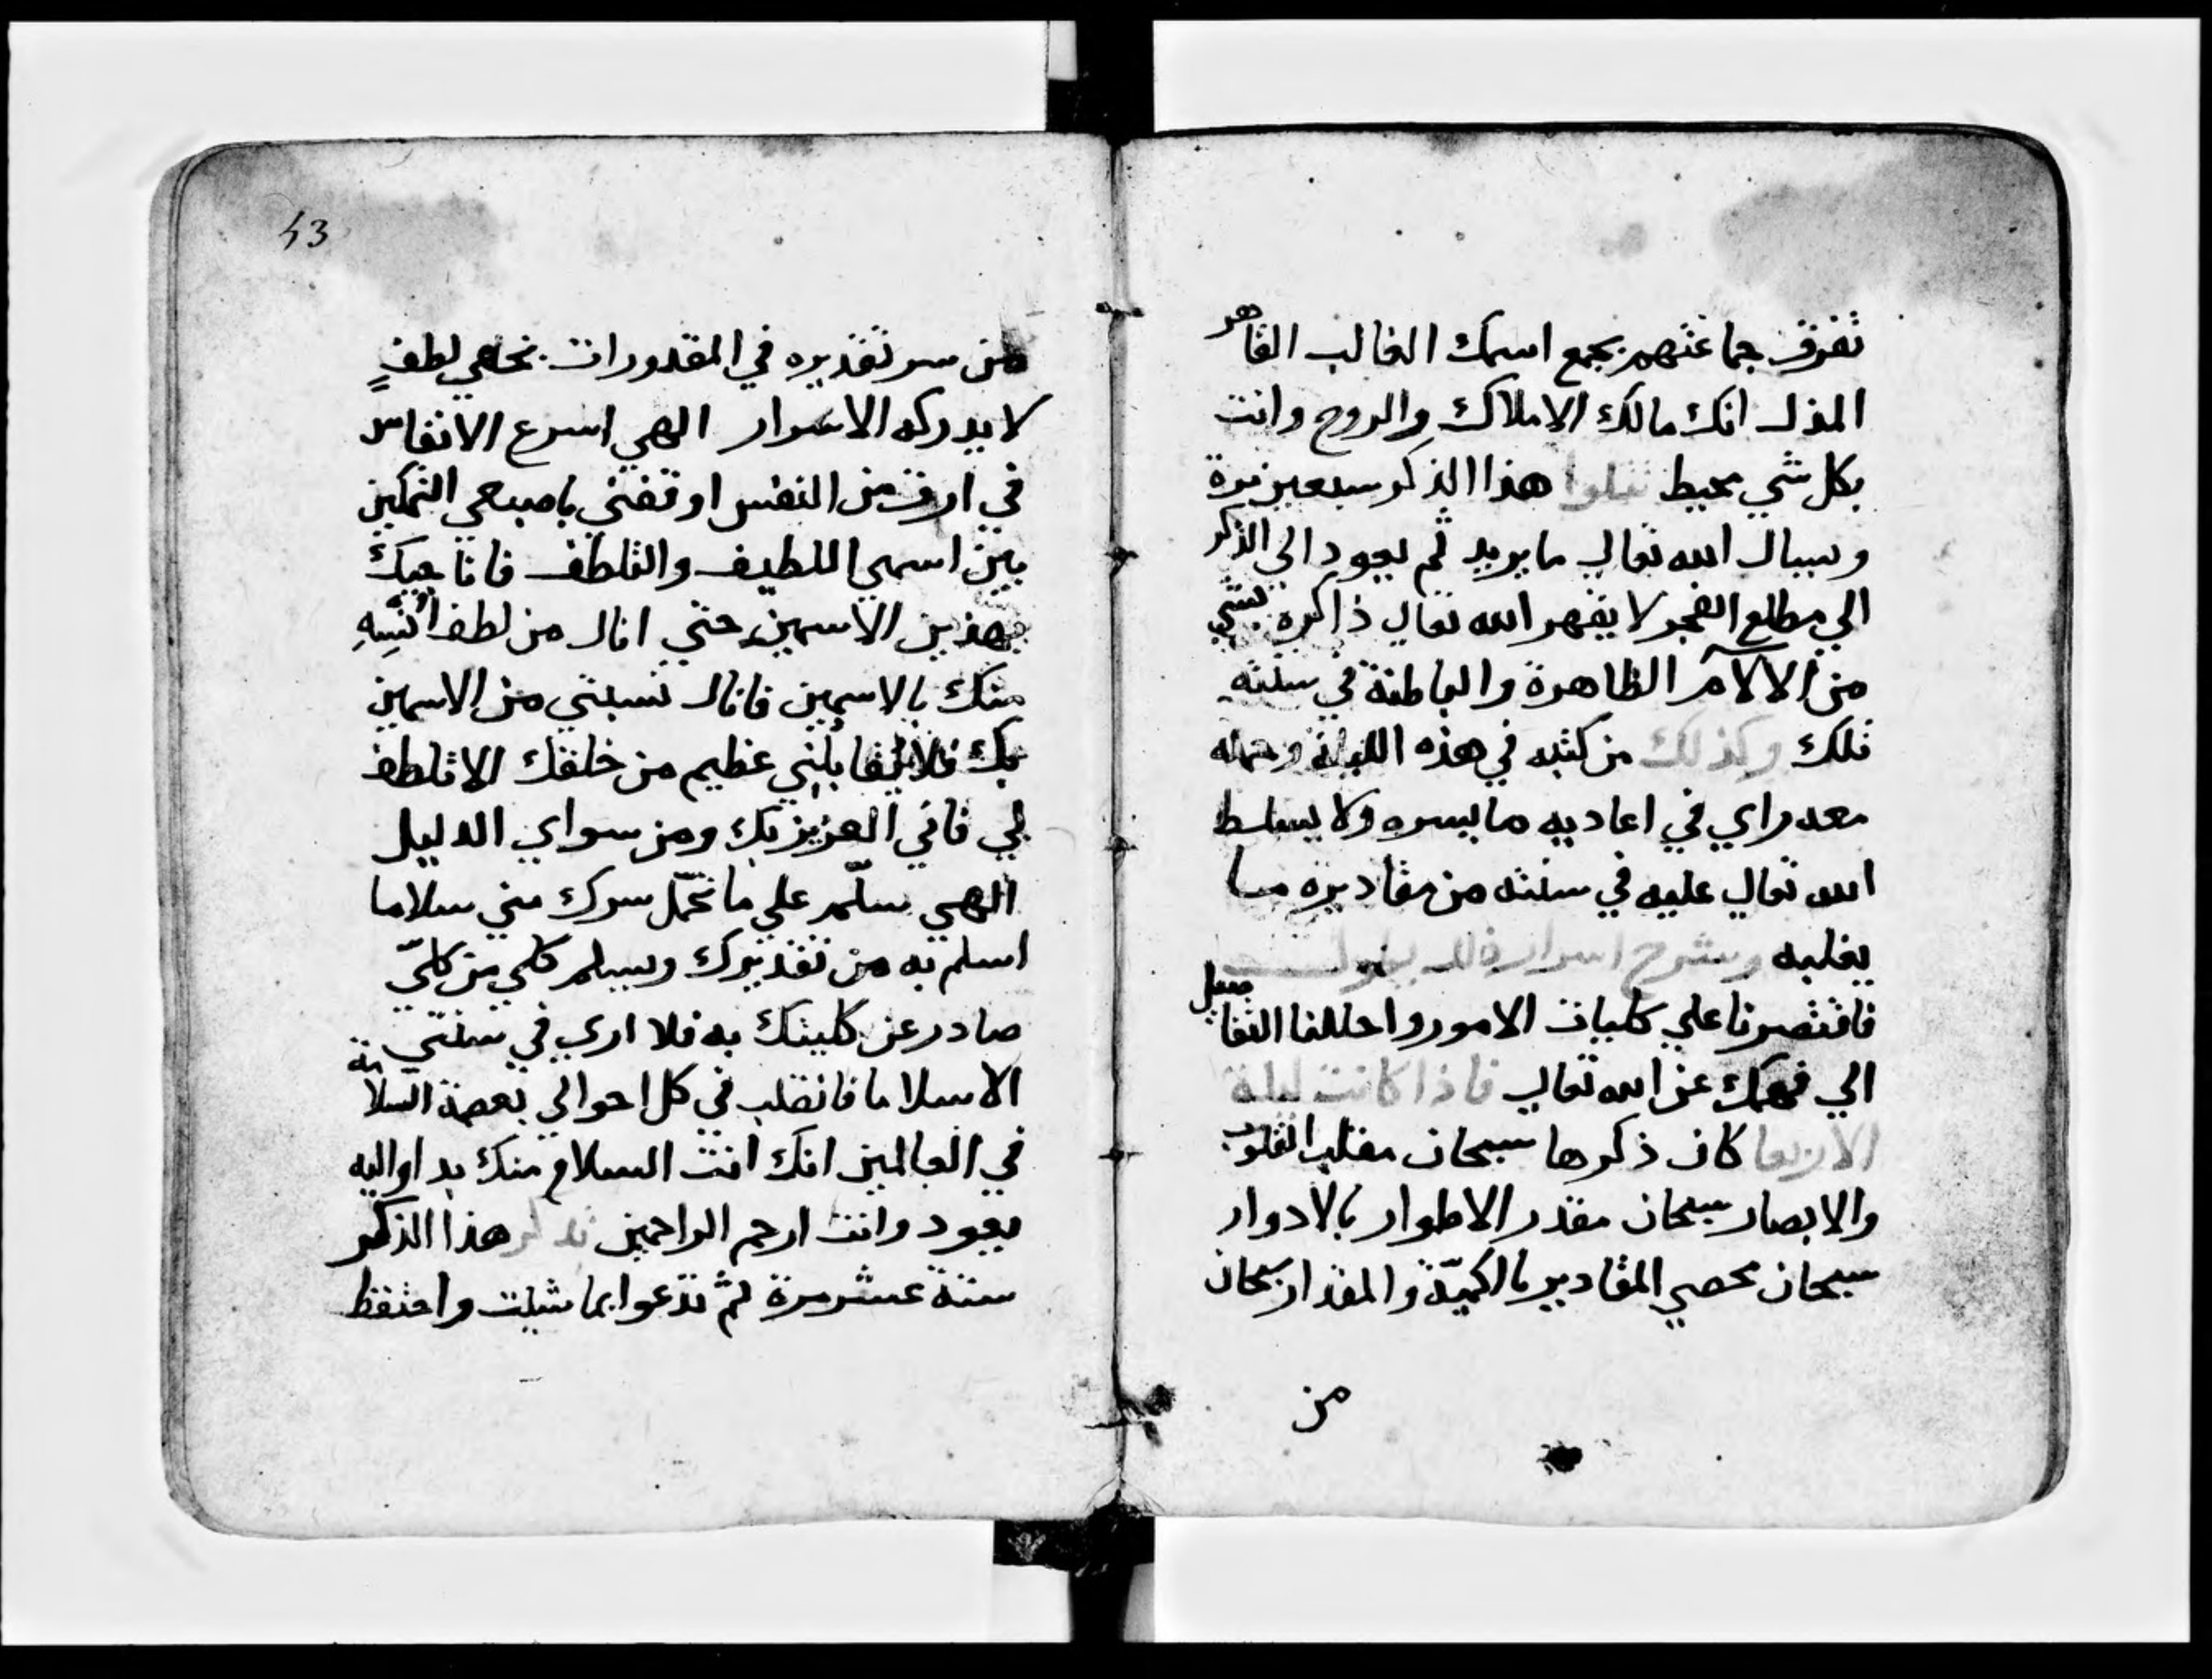 تفرق جماعتهم بجمع اسمك الغالب القاهر
المذل انك مالك الاملاك والروح وانت
بكل شي محيط تتلوا هذا الذكر سبعين مرة
وسال الله تعالي ما يريد ثم يعود الي الذكر
الي مطلع الفجر لا يقهر الله تعالي ذاكره بشي
من الالام الظاهرة والباطنة في سنته
تلك وكذلك من كتبه في هذه الليلة وحمله
معه راي في اعاديه ما يسره ولا يسلط
الله تعالي عليه في سنته من مقاديره ما
يغلبه وشرح اسرار ذلك يطول
فاقتصرنا علي كليات الامور واحللنا التفاصيل
الي فهمك عن الله تعالي فاذا كانت ليلة
الاربعا كان ذكرها سبحان مقلب القلوب
والابصار سبحان مقدر الاطوار بالادوار
سبحان محصي المقادير بالكميّة والمقدار سبحان
من
43
من سر تقديره في المقدورات بخافي لطفٍ
لا يدركه الاسرار الهي اسرع الانفاس
في ارق من النفس اوقفتني التمكين
بين اسمي اللطيف والتلطف فاناجيك
بهذين الاسمين حتي انال من لطف
منك بالاسمين فانال نسبتي من الاسمين
بك فلا يقابلني عظيم من خلقك الا تلطف
لي فاني العزيز بك ومن سواي الدليل
الهي سلّم علي ما تحمّل سرك مني سلاما
اسلم به من تقديرك ويسلم كلي من كليّ
صادر عن كليتك به فلا اري في سنتي
الا سلاما فانقلب في كل احوالي بعصمة السلامة
في العالمين انك انت السلام منك بدا واليه
يعود وانت ارحم الراحمين تذكر هذا الذكر
ستة عشر مرة ثم تدعوا بما شيت واحتفظ